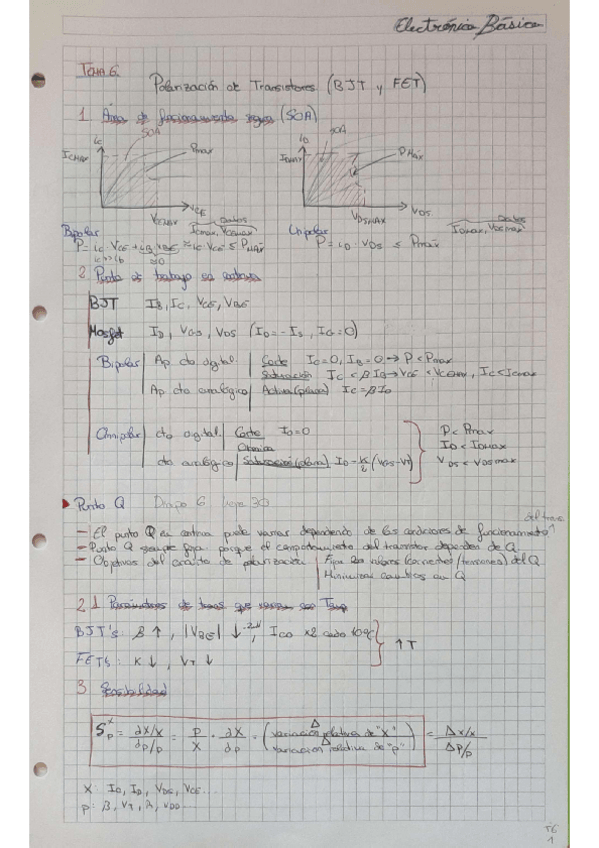 Electrónica Básica
TEMA 6.
Polarización de Transistores (BJT y FET)
1. Área de funcionamiento segura (SOA)
ic SOA
ICMAX Pmax
VCEMAX VCE
iD SOA
IDMAX PMÁX
VDSMAX VDS
Datos
ICmax, VCEmax
Datos
IDmax, VDSmax
Bipolar
P = ic·VCE + iB·VBE ≈ ic·VCE ≤ PMÁX
ic>>ib ≈0
Unipolar
P = iD · VDS ≤ Pmáx
2. Punto de trabajo en continua
BJT IB, IC, VCE, VBE
Mosfet ID, VGS, VDS (ID = -IS, IG=0)
Bipolar Ap. cto digital Corte IC=0, IB=0 → P < Pmax
Saturación IC < βIB → VCE < VCEMAX, IC < ICmax
Ap cto analógico Activa (plana) IC = βIB
Unipolar cto digital Corte ID=0
Ohmica
cto analógico Saturación (plana) ID = K/2 (VGS-VT)
P < Pmax
ID < IDmax
VDS < VDSmax
Punto Q Diapo 6 hoja 30
- El punto Q en continua puede variar dependiendo de las condiciones de funcionamiento
- Punto Q siempre fijo porque el comportamiento del transistor depende de Q
- Objetivos del circuito de polarización Fijar los valores (corrientes/tensiones) del Q
Minimizar cambios en Q
2.1 Parámetros de que varían con Temp
BJT's: β ↑, |VBE| ↓, ICO x2 cada 10ºC
↑T
FETs: K ↓, VT ↓
3 Sensibilidad
S^x_p = (∂X/X)/(∂p/p) = p/X · ∂X/∂p = (variación relativa de "X" / variación relativa de "p") = (Δx/x)/(Δp/p)
X: ID, VDS, VCE...
p: β, VT, VDD...
T6
1